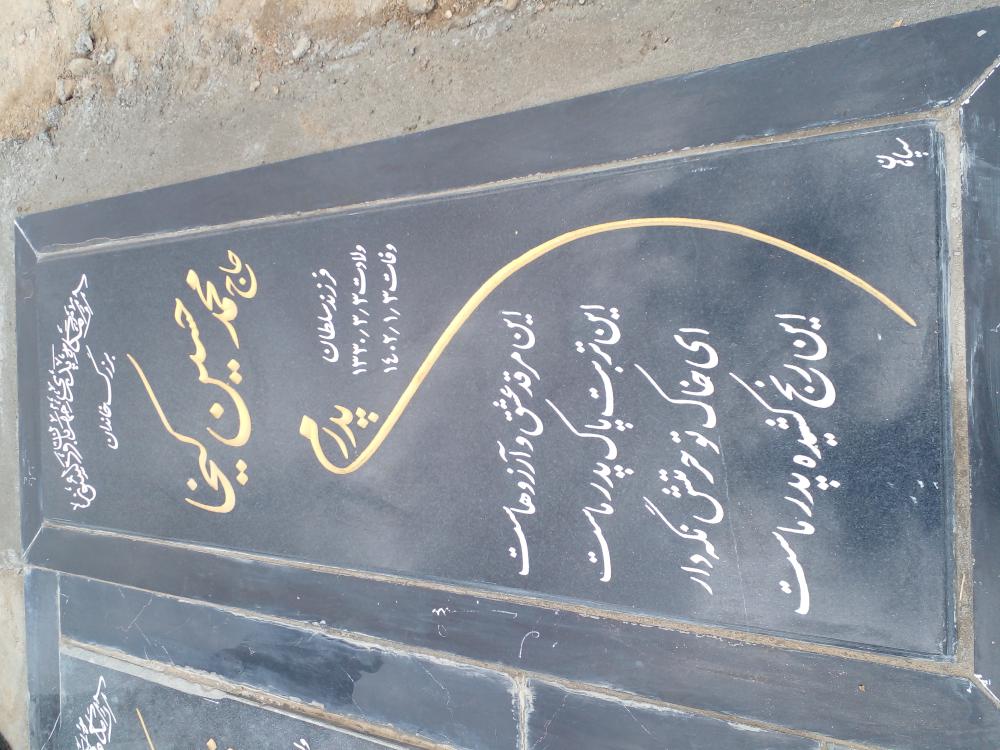 بزرگ خاندان
حاج محمد حسین کیخا
فرزند سلطان
ولادت ۱۳۳۰/۳/۳
وفات ۱۴۰۲/۱/۳
پدرم
این مرقد عشق و آرزوهاست
این تربت پاک پدر ماست
ای خاک تو حرمتش نگه دار
این رنج کشیده پدر ماست